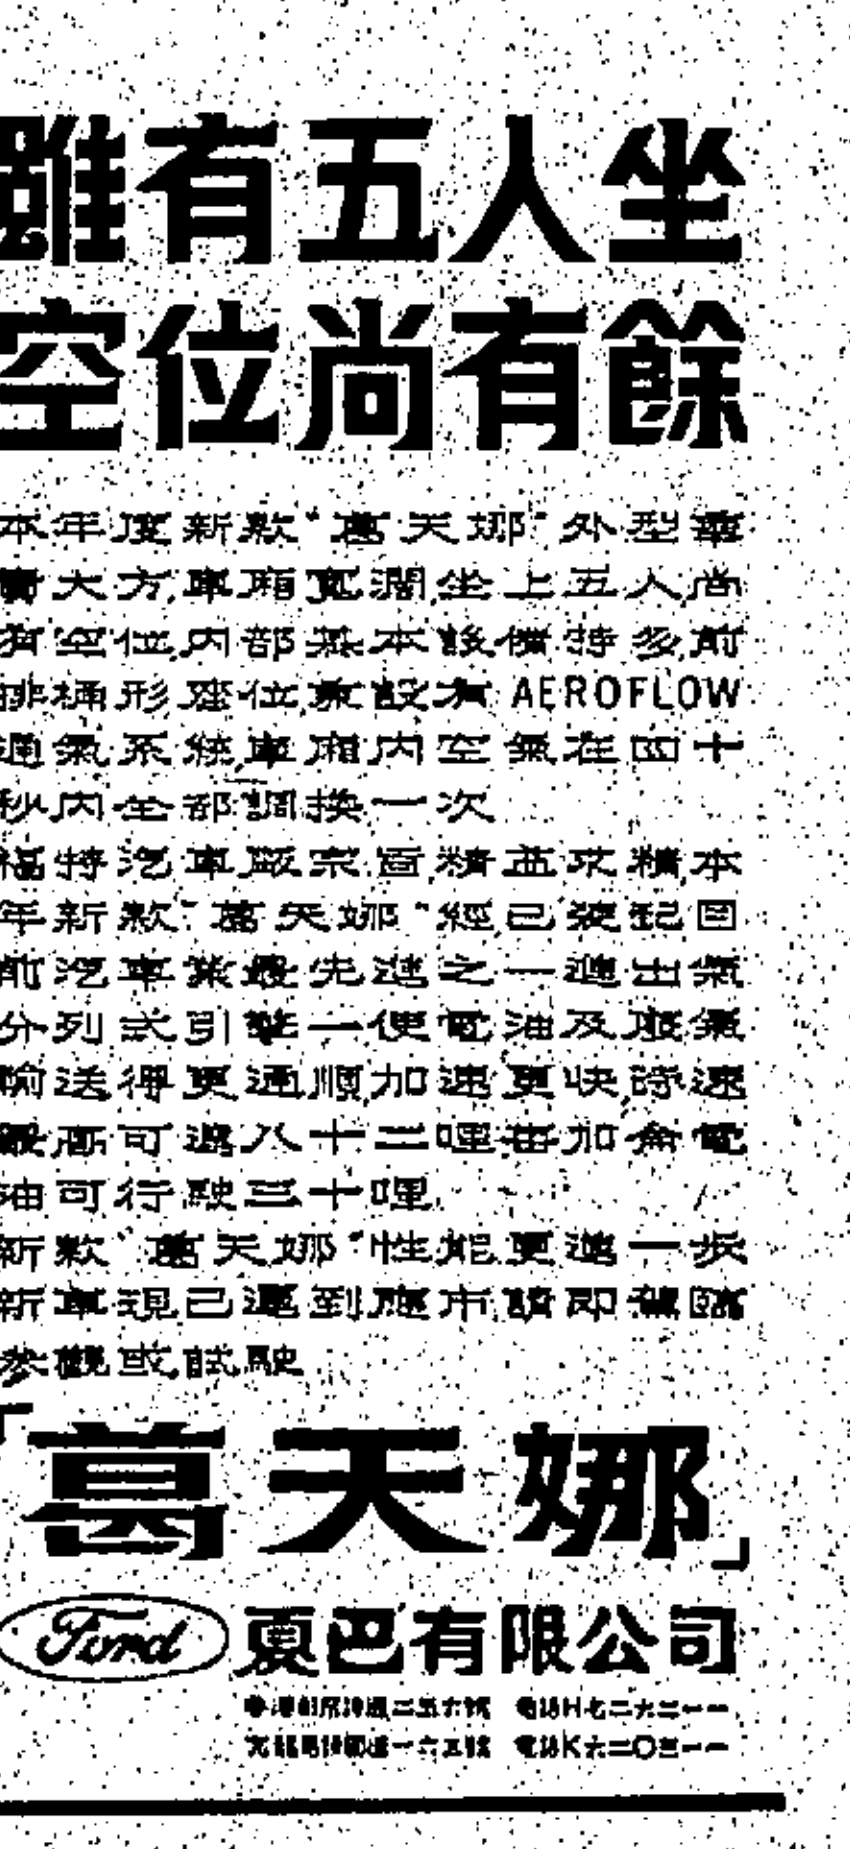 雖有五人坐
空位尚有餘
本年度新款“葛天娜”外型華
貴大方,車廂寬濶,坐上五人尚
有空位,内部基本設備特多,前
排桶形座位,兼設有 AEROFLOW
通氣系統,車廂内空氣在四十
秒内全部調換一次
福特汽車廠宗旨,精益求精,本
年新款“葛天娜”經已裝配目
前汽車業最先進之一進出氣
分列式引擎一使電油及廢氣
輸送得更通順,加速更快,時速
最高可達八十二哩,每加侖電
油可行駛三十哩
新款“葛天娜”性能更進一步
新車現已運到應市,請即駕臨
參觀或試駛
「葛天娜」
Ford 夏巴有限公司
香港軒尼詩道二五六號 電話H七二六二一一
九龍馬頭涌道一六五號 電話K六二〇三一一